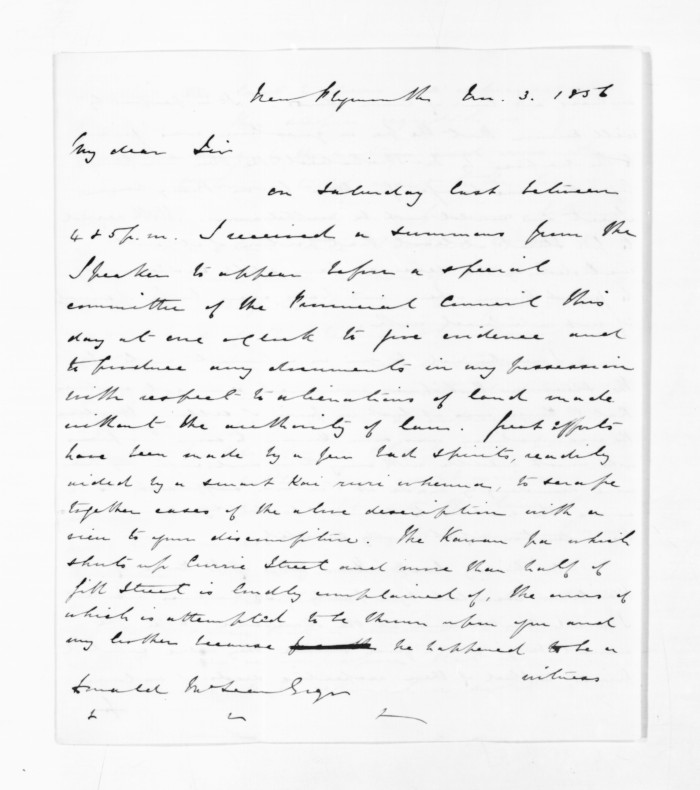 New Plymouth Nov. 3. 1856
My dear Sir
on Saturday last between
4 & 5 p.m. I received a summons from the
Speaker to appear before a special
committee of the Provincial Council this
day at one o'clock to give evidence and
to produce any documents in my possession
with respect to alienations of land made
without the authority of law. Great efforts
have been made by a few bad spirits, readily
aided by a smart Kai ruri whenua, to scrape
together cases of the above description with a
view to your discomfiture. The Kawau pa which
shuts up Currie Street and more than half of
Gill Street is loudly complained of, the onus of
which is attempted to be thrown upon you and
my brother because he happened to be a
witness
Donald McLean Esqr